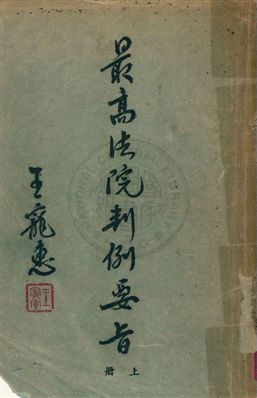 最高法院判例要旨
王寵惠
上册